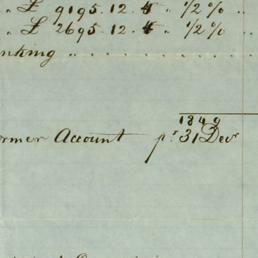 " £ 9195.12.4 " 1/2 %
" £ 2695.12.4 " 1/2 %
nking
1849
ormer Account pr 31 Decr